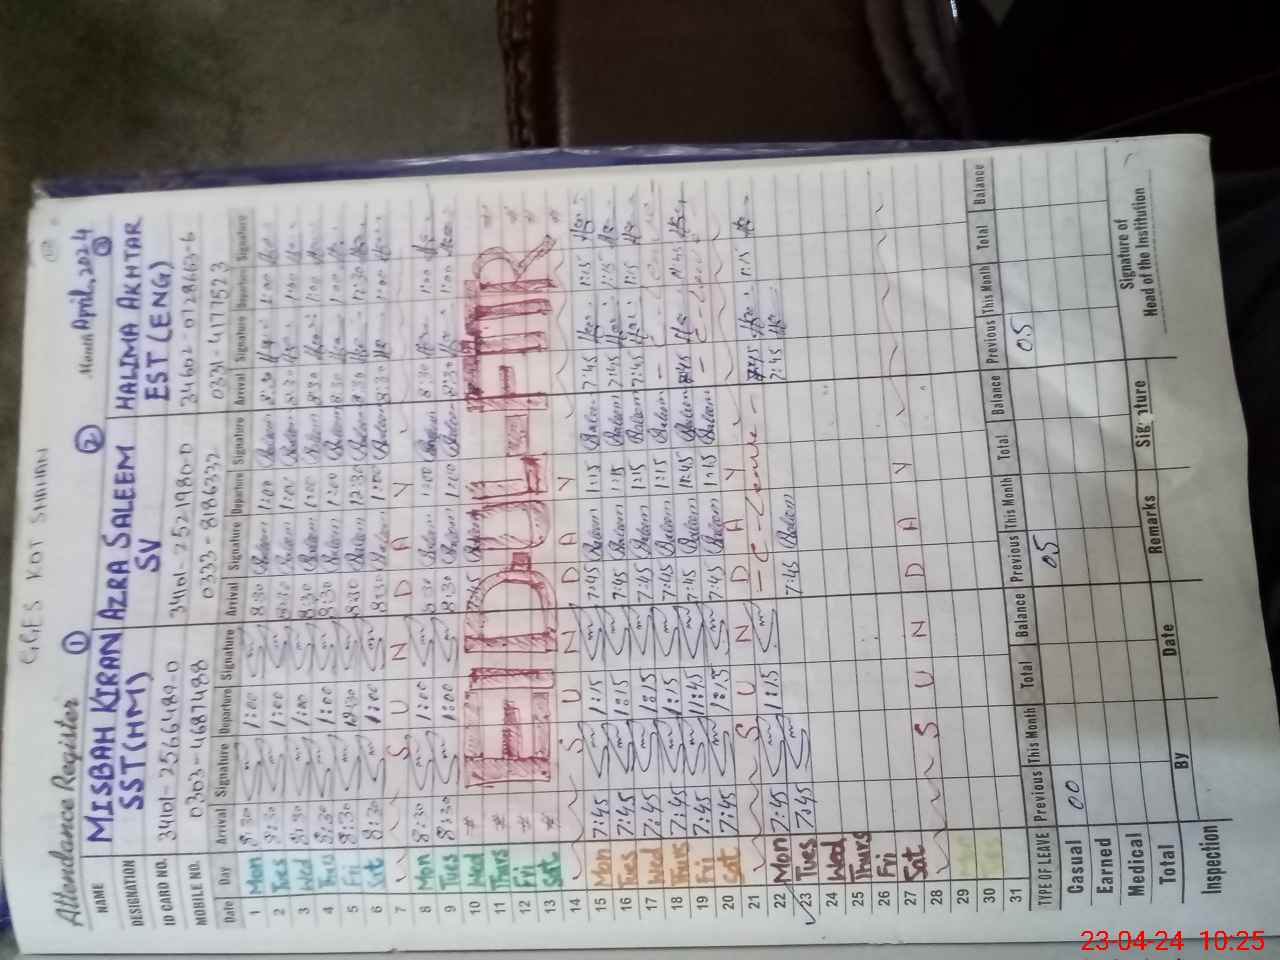 GGES KOT SHAHAN
Attendance Register
Month April, 2024
① ② ③
NAME MISBAH KIRAN AZRA SALEEM HALIMA AKHTAR
DESIGNATION SST(HM) SV EST (ENG)
ID CARD NO. 34101-2566489-0 34101-2521980-0
MOBILE NO. 0303-4687488 0333-8186332 0331-4177523
Date Day Arrival Signature Departure Signature Arrival Signature Departure Signature Arrival Signature Departure Signature
1 Mon 8:30 1:00 8:30 1:00 8:30 1:00
2 Tues 8:30 1:00 8:30 1:00 8:30 1:00
3 Wed 8:30 1:00 8:30 1:00 8:30 1:00
4 Thurs 8:30 1:00 8:30 1:00 8:30 1:00
5 Fri 8:30 12:30 8:30 12:30 8:30 12:30
6 Sat 8:30 1:00 8:30 1:00 8:30 1:00
7 S U N D A Y
8 Mon 8:30 1:00 8:30 1:00 8:30 1:00
9 Tues 8:30 1:00 8:30 1:00 8:30 1:00
10 Wed
11 Thurs
12 Fri
13 Sat
EID-UL-FITR
14 S U N D A Y
15 Mon 7:45 1:15 7:45 1:15 7:45 1:15
16 Tues 7:45 1:15 7:45 1:15 7:45 1:15
17 Wed 7:45 1:15 7:45 1:15 7:45 1:15
18 Thurs 7:45 1:15 7:45 1:15
19 Fri 7:45 11:45 7:45 11:45 7:45 11:45
20 Sat 7:45 1:15 7:45 1:15
21 S U N D A Y
22 Mon 7:45 1:15 - C - Leave - 7:45 1:15
23 Tues 7:45 7:45 7:45
24 Wed
25 Thurs
26 Fri
27 Sat
28 S U N D A Y
29 Mon
30 Tues
31
TYPE OF LEAVE Previous This Month Total Balance Previous This Month Total Balance Previous This Month Total Balance
Casual 00 05 05
Earned
Medical
Total
Inspection By Date Remarks Signature
Signature of
Head of the Institution
23-04-24 10:25